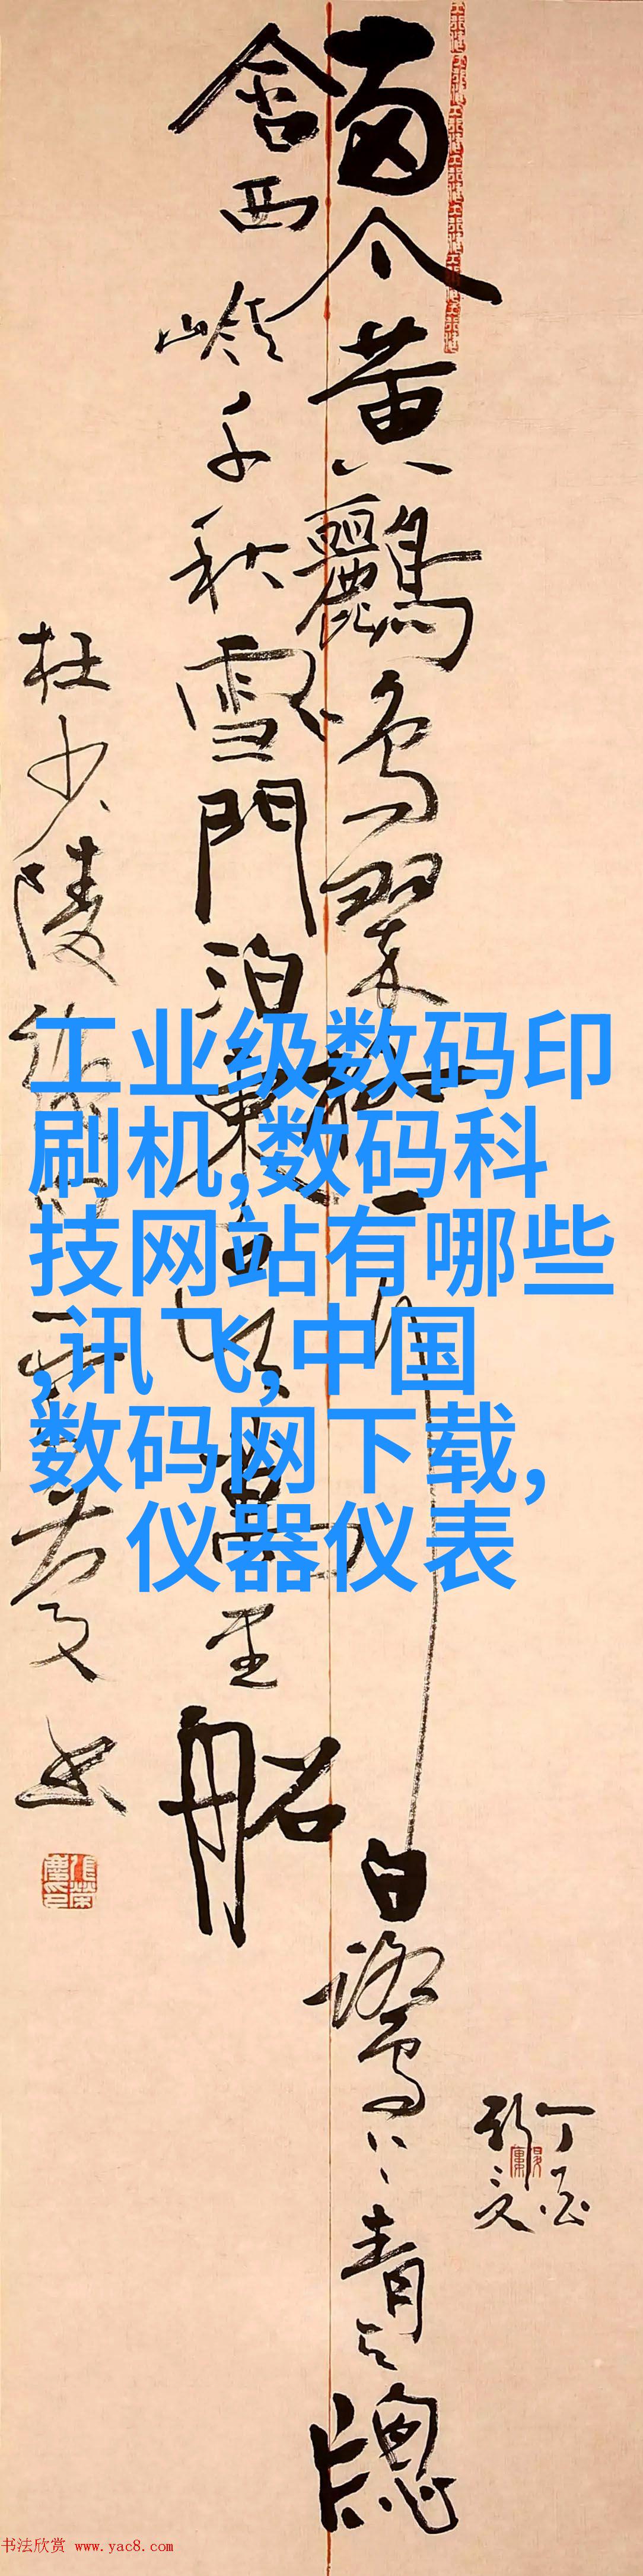 兩个黄鸝鳴翠柳一行白鷺上青天牕
含西嶺千秋雪門泊東吴萬里船
杜少陵
工业级数码印
刷机,数码科
技网站有哪些
,讯飞,中国
数码网下载,
仪器仪表
书法欣赏 www.yac8.com